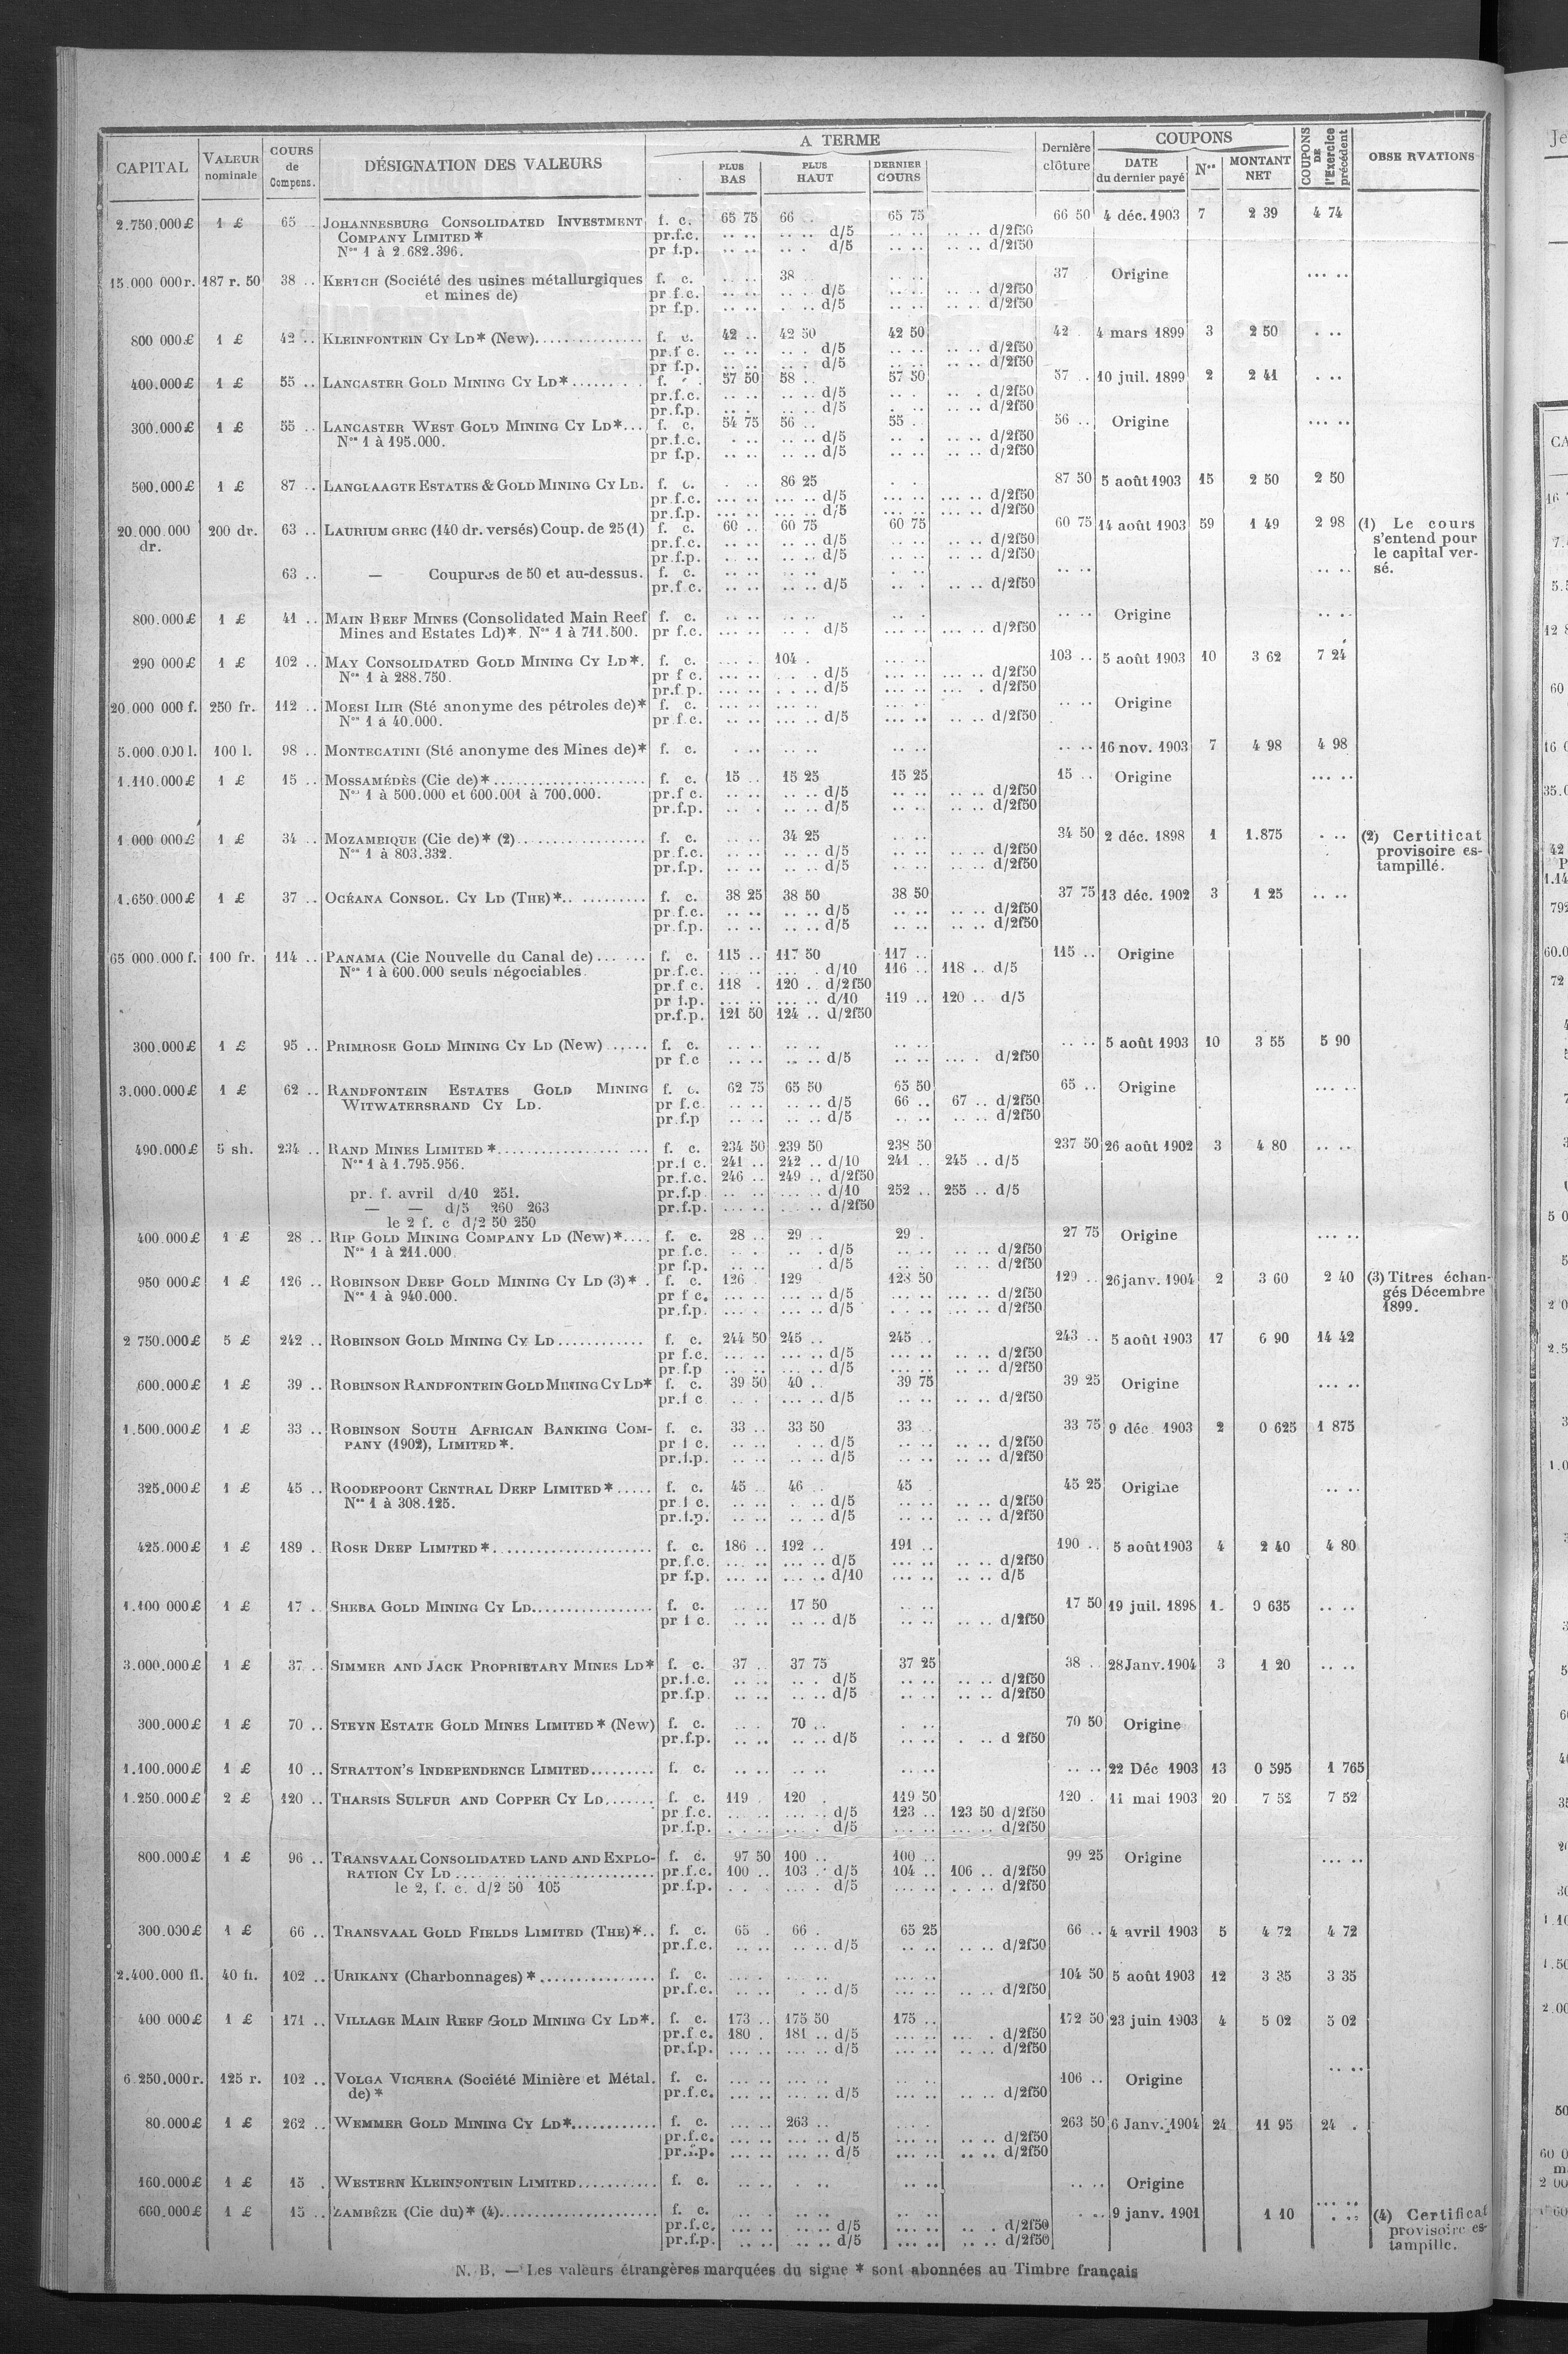 CAPITAL | VALEUR nominale | COURS de Compens. | DÉSIGNATION DES VALEURS | A TERME | PLUS BAS | PLUS HAUT | DERNIER COURS | Dernière clôture | COUPONS | DATE du dernier payé | Nos | MONTANT NET | COUPONS DE l'Exercice précédent | OBSERVATIONS
2.750.000£ 1 £ 65 .. JOHANNESBURG CONSOLIDATED INVESTMENT f. c. 65 75 66 . 65 75 66 50 4 déc. 1903 7 2 39 4 74
COMPANY LIMITED * pr.f.c. .. .. .. .. d/5 .. .. .. .. d/2f50
Nos 1 à 2.682.396. pr f.p. .. .. .. . d/5 .. .. .. .. d/2f50
15.000 000r. 187 r. 50 38 .. KERTCH (Société des usines métallurgiques f. c. .. .. 38 .. .. 37 Origine ... ..
et mines de) pr f.c. .. .. .. . d/5 .. .. .. .. d/2f50
pr f.p. .. .. . .. d/5 .. .. .. .. d/2f50
800 000£ 1 £ 42 .. KLEINFONTEIN CY LD* (New) f. c. 42 .. 42 50 42 50 42 . 4 mars 1899 3 2 50 . ..
pr.f c. .. .. .. . d/5 .. .. .. .. d/2f50
pr f.p. .. .. .. . d/5 .. .. .. .. d/2f50
400.000£ 1 £ 55 .. LANCASTER GOLD MINING CY LD* f. 57 50 58 .. 57 50 57 . 10 juil. 1899 2 2 41 . ..
pr.f.c. .. .. .. .. d/5 .. . .. . d/2f50
pr.f.p. .. . .. .. d/5 . .. .. .. d/2f50
300.000£ 1 £ 55 .. LANCASTER WEST GOLD MINING CY LD* f. c. 54 75 56 .. 55 .. 56 .. Origine ... ..
Nos 1 à 195.000. pr.f.c. . .. .. .. d/5 .. . .. .. d/2f50
pr f.p. .. .. .. .. d/5 .. .. .. .. d/2f50
500.000£ 1 £ 87 .. LANGLAAGTE ESTATES & GOLD MINING CY LD. f. c. . .. 86 25 . . 87 50 5 août 1903 15 2 50 2 50
pr.f.c. ... .. ... .. d/5 ... .. ... .. d/2f50
pr.f.p. ... .. ... .. d/5 ... .. ... .. d/2f50
20.000.000 200 dr. 63 .. LAURIUM GREC (140 dr. versés) Coup. de 25 (1) f. c. 60 .. 60 75 60 75 60 75 14 août 1903 59 1 49 2 98 (1) Le cours
dr. pr.f.c. .. .. .. .. d/5 .. .. .. .. d/2f50 s'entend pour
pr.f.p. .. .. .. .. d/5 .. .. .. .. d/2f50 le capital ver-
63 .. — Coupures de 50 et au-dessus. f. c. .. .. .. .. .. . .. .. .. .. sé.
pr.f c. .. .. .. .. d/5 .. . .. .. d/2f50
800.000£ 1 £ 41 .. MAIN REEF MINES (Consolidated Main Reef f. c. .. .. .. .. .. . .. .. Origine .. ..
Mines and Estates Ld)*. Nos 1 à 711.500. pr f.c. ... .. .. . d/5 ... .. ... .. d/2f50
290 000£ 1 £ 102 .. MAY CONSOLIDATED GOLD MINING CY LD*. f. c. ... .. 104 . ... .. 103 .. 5 août 1903 10 3 62 7 24
Nos 1 à 288.750. pr f c. ... .. .. . d/5 ... .. ... .. d/2f50
pr.f p. ... .. . .. d/5 ... .. ... . d/2f50
20.000 000 f. 250 fr. 112 .. MOESI ILIR (Sté anonyme des pétroles de)* f. c. ... .. ... .. ... .. .. .. Origine
Nos 1 à 40.000. pr f.c. .. .. ... .. d/5 ... .. .. .. d/2f50
5.000.000 l. 100 l. 98 .. MONTECATINI (Sté anonyme des Mines de)* f. c. . .. .. .. .. .. .. .. 16 nov. 1903 7 4 98 4 98
1.110.000£ 1 £ 15 .. MOSSAMÉDÈS (Cie de)* f. c. 15 .. 15 25 15 25 15 .. Origine ... ..
Nos 1 à 500.000 et 600.001 à 700.000. pr.f c. .. .. .. .. d/5 .. .. .. .. d/2f50
pr.f.p. .. . .. .. d/5 .. .. .. .. d/2f50
1 000 000£ 1 £ 34 .. MOZAMBIQUE (Cie de)* (2) f. c. .. .. 34 25 .. .. 34 50 2 déc. 1898 1 1.875 . .. (2) Certificat
Nos 1 à 803.332. pr.f.c. .. .. .. .. d/5 .. .. .. .. d/2f50 provisoire es-
pr.f.p. .. .. .. .. d/5 .. .. .. .. d/2f50 tampillé.
1.650.000£ 1 £ 37 .. OCÉANA CONSOL. CY LD (THE)* f. c. 38 25 38 50 38 50 37 75 13 déc. 1902 3 1 25 .. ..
pr.f.c. .. .. .. .. d/5 .. .. .. .. d/2f50
pr.f.p. .. .. .. .. d/5 .. .. .. .. d/2f50
65 000.000 f. 100 fr. 114 .. PANAMA (Cie Nouvelle du Canal de) f. c. 115 .. 117 50 117 .. 115 .. Origine
Nos 1 à 600.000 seuls négociables pr.f.c. .. .. ... . d/10 116 .. 118 .. d/5
pr.f c. 118 . 120 .. d/2f50
pr f.p. ... .. ... .. d/10 119 .. 120 .. d/5
pr.f.p. 121 50 124 .. d/2f50
300.000£ 1 £ 95 .. PRIMROSE GOLD MINING CY LD (New) f. c. .. .. .. .. .. .. .. .. 5 août 1903 10 3 55 5 90
pr f.c .. .. .. .. d/5 .. .. ... . d/2f50
3.000.000£ 1 £ 62 .. RANDFONTEIN ESTATES GOLD MINING f. c. 62 75 65 50 65 50 65 .. Origine ... ..
WITWATERSRAND CY LD. pr f.c. .. .. .. .. d/5 66 .. 67 .. d/2f50
pr.f.p .. .. .. .. d/5 .. .. .. .. d/2f50
490.000£ 5 sh. 234 .. RAND MINES LIMITED * f. c. 234 50 239 50 238 50 237 50 26 août 1902 3 4 80 .. ..
Nos 1 à 1.795.956. pr.f c. 241 .. 242 .. d/10 241 .. 245 .. d/5
pr.f.c. 246 .. 249 .. d/2f50
pr. f. avril d/10 251. pr.f.p .. .. ... .. d/10 252 .. 255 .. d/5
— — d/5 260 263 pr.f.p. .. .. ... .. d/2f50
le 2 f. c d/2 50 250
400.000£ 1 £ 28 .. RIP GOLD MINING COMPANY LD (New)* f. c. 28 .. 29 .. 29 . 27 75 Origine ... ..
Nos 1 à 211.000. pr f.c. .. . .. . d/5 .. .. .. .. d/2f50
pr f.p. .. .. . d/5 .. .. .. .. d/2f50
950 000£ 1 £ 126 .. ROBINSON DEEP GOLD MINING CY LD (3)* . f. c. 126 129 128 50 129 .. 26 janv. 1904 2 3 60 2 40 (3) Titres échan-
Nos 1 à 940.000. pr f c. ... .. ... .. d/5 ... .. ... .. d/2f50 gés Décembre
pr.f.p. ... . ... .. d/5 . .. .. ... .. d/2f50 1899.
2 750.000£ 5 £ 242 .. ROBINSON GOLD MINING CY LD f. c. 244 50 245 .. 245 .. 243 .. 5 août 1903 17 6 90 14 42
pr f.c. ... .. ... .. d/5 ... .. .. .. d/2f50
pr.f.p ... .. ... .. d/5 ... .. .. .. d/2f50
600.000£ 1 £ 39 .. ROBINSON RANDFONTEIN GOLD MINING CY LD* f. c. 39 50 40 .. 39 75 39 25 Origine ... ..
pr.f c .. . ... .. d/5 .. .. .. .. d/2f50
1.500.000£ 1 £ 33 .. ROBINSON SOUTH AFRICAN BANKING COM- f. c. 33 .. 33 50 33 .. 33 75 9 déc. 1903 2 0 625 1 875
PANY (1902), LIMITED*. pr f c. .. .. . .. d/5 .. .. .. .. d/2f50
pr.f.p. .. .. .. .. d/5 .. .. .. .. d/2f50
325.000£ 1 £ 45 .. ROODEPOORT CENTRAL DEEP LIMITED* f. c. 45 .. 46 .. 45 45 25 Origine .. ..
Nos 1 à 308.125. pr.f c. .. .. . .. d/5 .. .. .. .. d/2f50
pr.f.p. .. .. .. .. d/5 .. .. .. .. d/2f50
425.000£ 1 £ 189 . ROSE DEEP LIMITED* f. c. 186 .. 192 .. 191 .. 190 .. 5 août 1903 4 2 40 4 80
pr.f.c. ... .. ... .. d/5 ... .. .. .. d/2f50
pr f.p. ... .. ... .. d/10 ... .. .. .. d/5
1.100 000£ 1 £ 17 . SHEBA GOLD MINING CY LD f. c. .. .. 17 50 .. .. 17 50 19 juil. 1898 1. 0 635 .. ..
pr f c. .. .. .. .. d/5 .. .. .. .. d/2f50
3.000.000£ 1 £ 37 .. SIMMER AND JACK PROPRIETARY MINES LD* f. c. 37 . 37 75 37 25 38 .. 28 Janv. 1904 3 1 20 .. ..
pr.f.c. .. .. .. . d/5 .. .. .. .. d/2f50
pr.f.p. .. .. .. .. d/5 .. .. .. .. d/2f50
300.000£ 1 £ 70 .. STEYN ESTATE GOLD MINES LIMITED* (New) f. c. .. . 70 .. . .. 70 50 Origine
pr.f.p. .. .. .. .. d/5 .. .. . .. d 2f50
1.100.000£ 1 £ 10 .. STRATTON'S INDEPENDENCE LIMITED f. c. .. .. .. .. .. .. .. .. 22 Déc 1903 13 0 595 1 765
1.250.000£ 2 £ 120 .. THARSIS SULFUR AND COPPER CY LD f. c. 119 . 120 . 119 50 120 . 11 mai 1903 20 7 52 7 52
pr f.c. ... .. ... .. d/5 123 .. 123 50 d/2f50
pr.f.p. . .. .. ... . d/5 ... .. ... .. d/2f50
800.000£ 1 £ 96 .. TRANSVAAL CONSOLIDATED LAND AND EXPLO- f. c. 97 50 100 .. 100 .. 99 25 Origine ... ..
RATION CY LD pr.f.c. 100 .. 103 .. d/5 104 .. 106 .. d/2f50
le 2, f. c. d/2 50 105 pr.f.p. .. . ... . d/5 ... .. . . .. d/2f50
300.000£ 1 £ 66 .. TRANSVAAL GOLD FIELDS LIMITED (THE)* f. c. 65 . 66 . 65 25 66 .. 4 avril 1903 5 4 72 4 72
pr.f.c. .. .. .. .. d/5 .. .. .. .. d/2f50
2.400.000 fl. 40 fl. 102 .. URIKANY (Charbonnages) * f. c. ... . .. .. ... .. 104 50 5 août 1903 12 3 35 3 35
pr.f.c. .. .. . .. d/5 ... .. .. .. d/2f50
400 000£ 1 £ 171 .. VILLAGE MAIN REEF GOLD MINING CY LD*. f. c. 173 .. 175 50 175 .. 172 50 23 juin 1903 4 5 02 5 02
pr.f c. 180 . 181 .. d/5 ... .. ... . d/2f50
pr.f.p. ... .. ... .. d/5 ... .. .. .. d/2f50
6.250.000r. 125 r. 102 .. VOLGA VICHERA (Société Minière et Métal. f. c. ... .. ... .. ... .. 106 .. Origine .. ..
de)* pr.f.c. ... .. ... .. d/5 ... .. .. .. d/2f50
80.000£ 1 £ 262 .. WEMMER GOLD MINING CY LD* f. c. ... .. 263 .. .. . 263 50 6 Janv. 1904 24 11 95 24 .
pr.f.c. ... .. ... .. d/5 ... .. .. .. d/2f50
pr.f.p. ... .. ... .. d/5 ... .. .. .. d/2f50
160.000£ 1 £ 15 . WESTERN KLEINFONTEIN LIMITED f. c. .. .. . .. .. .. .. .. Origine
600.000£ 1 £ 15 .. ZAMBÈZE (Cie du)* (4) f. c. .. .. .. .. .. .. . .. 9 janv. 1901 1 10 . .. (4) Certificat
pr.f.c. ... .. .. .. d/5 ... .. .. . d/2f50 provisoire es-
pr.f.p. .. .. .. .. d/5 ... .. .. .. d/2f50 tampillé.
N. B. — Les valeurs étrangères marquées du signe * sont abonnées au Timbre français